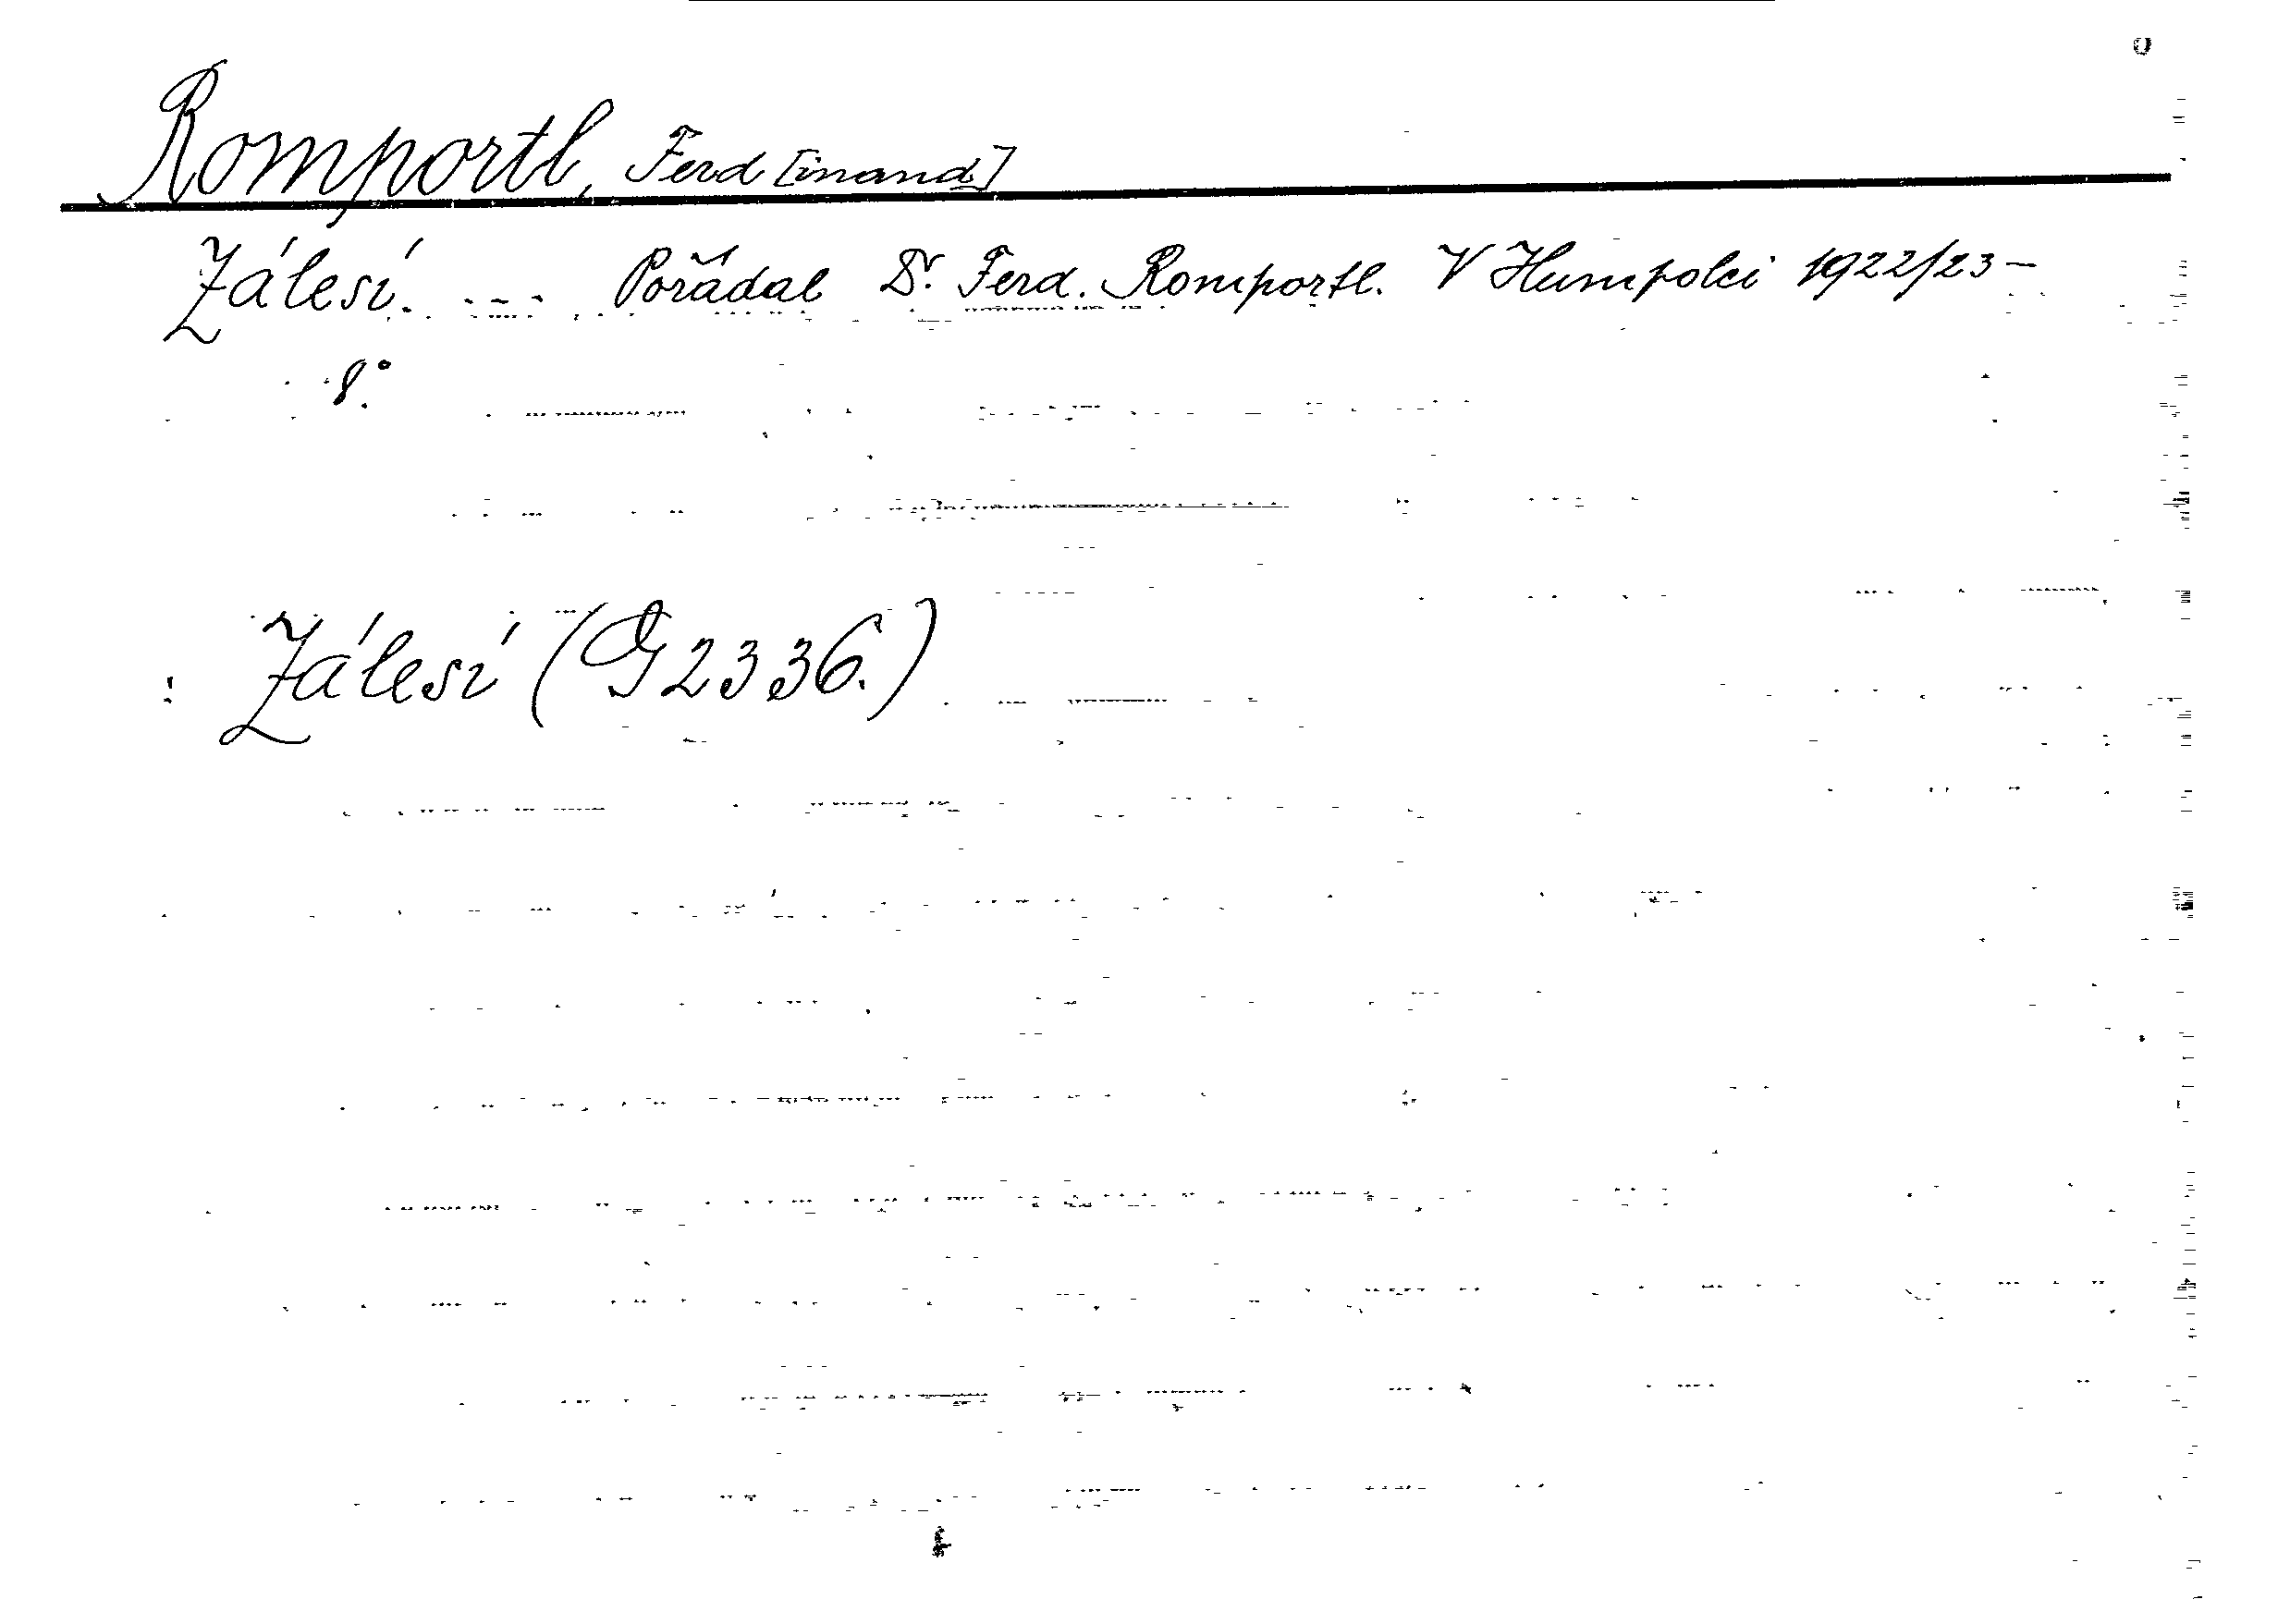 Romportl, Ferd [inand]
Zálesí. --- Pořádal Dr. Ferd. Romportl. V Humpolci 1922/23 -
8.°
Zálesí (G 2336.)